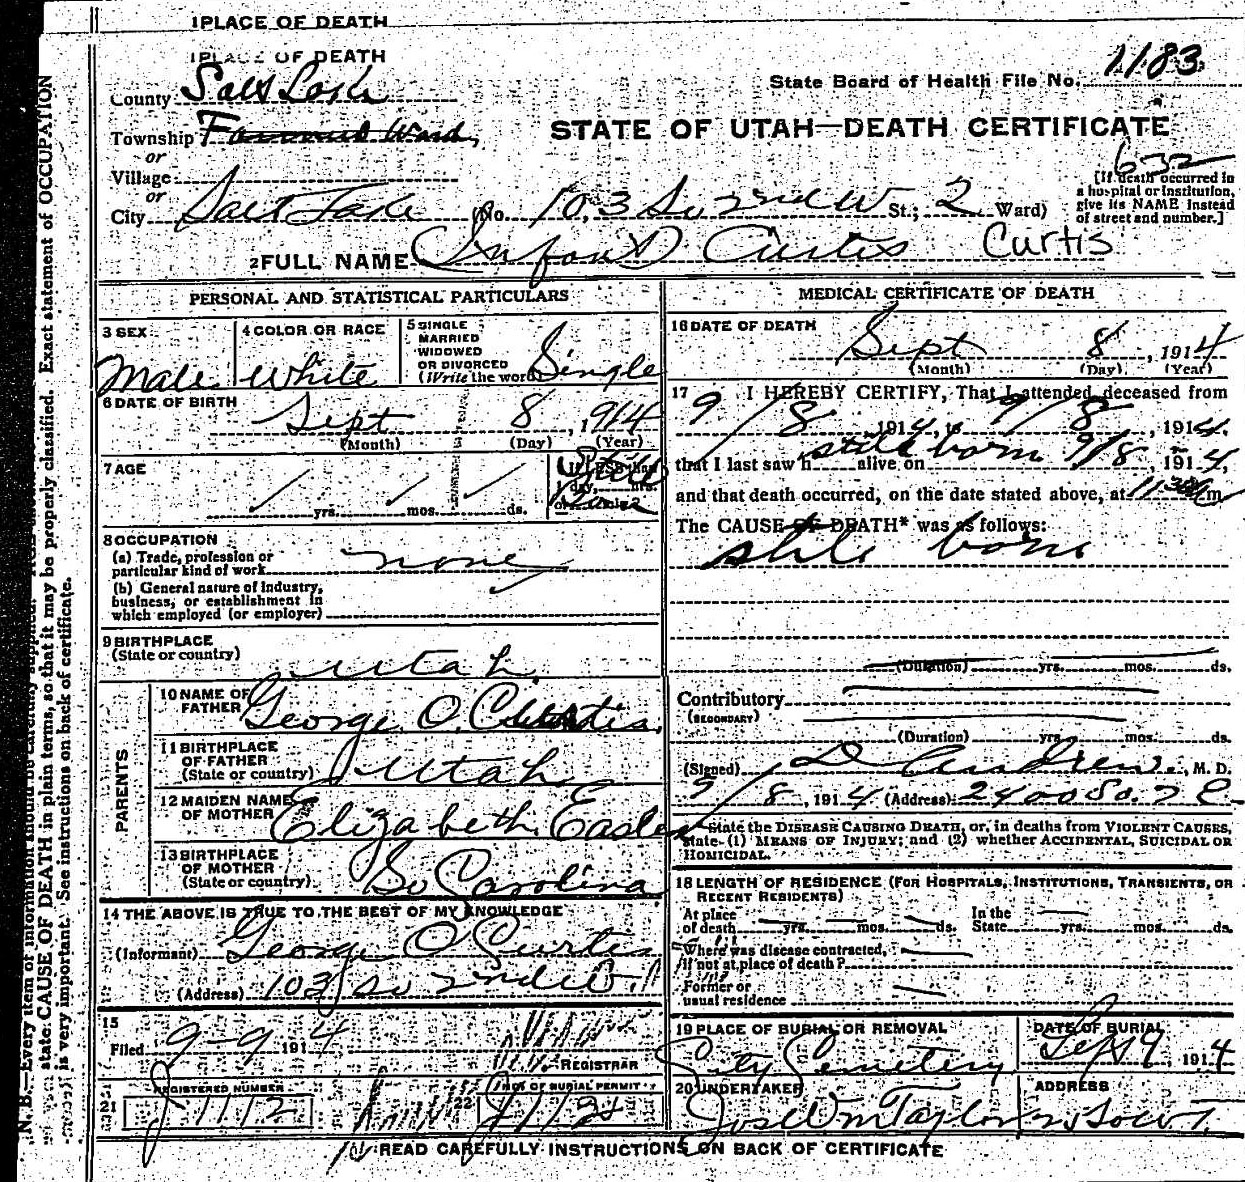 1 PLACE OF DEATH
1 PLACE OF DEATH
County Salt Lake
State Board of Health File No. 1183
Township Farmers Ward
STATE OF UTAH—DEATH CERTIFICATE
or
Village
632
[If death occurred in a hospital or institution, give its NAME instead of street and number.]
or
City Salt Lake (No. 103 So 2nd W St.; 2 Ward)
2 FULL NAME Infant Curtis Curtis
PERSONAL AND STATISTICAL PARTICULARS
3 SEX Male
4 COLOR OR RACE White
5 SINGLE MARRIED WIDOWED OR DIVORCED (Write the word) Single
6 DATE OF BIRTH
Sept 8, 1914
(Month) (Day) (Year)
7 AGE
yrs. mos. ds.
If LESS than 1 day, hrs.
Still Born
8 OCCUPATION
(a) Trade, profession or particular kind of work none
(b) General nature of industry, business, or establishment in which employed (or employer)
9 BIRTHPLACE
(State or country) Utah
PARENTS
10 NAME OF FATHER George O. Curtis
11 BIRTHPLACE OF FATHER (State or country) Utah
12 MAIDEN NAME OF MOTHER Elizabeth
13 BIRTHPLACE OF MOTHER (State or country) So Carolina
14 THE ABOVE IS TRUE TO THE BEST OF MY KNOWLEDGE
(Informant) George O Curtis
(Address) 103 So 2nd W
15
Filed 9-9 1914
REGISTRAR
REGISTERED NUMBER
21 1112
22 NO. OF BURIAL PERMIT
MEDICAL CERTIFICATE OF DEATH
16 DATE OF DEATH
Sept 8, 1914
(Month) (Day) (Year)
17 I HEREBY CERTIFY, That I attended deceased from
9/8 1914, to 9/8, 1914,
that I last saw h alive on still born 9/8, 1914,
and that death occurred, on the date stated above, at 11 30 m
The CAUSE OF DEATH* was as follows:
stile born
(Duration) yrs. mos. ds.
Contributory
(SECONDARY)
(Duration) yrs. mos. ds.
(Signed) D Andrew, M. D.
9/8, 1914 (Address) 2400 So. 7 E
*State the DISEASE CAUSING DEATH, or, in deaths from VIOLENT CAUSES, state (1) MEANS OF INJURY; and (2) whether ACCIDENTAL, SUICIDAL OR HOMICIDAL.
18 LENGTH OF RESIDENCE (FOR HOSPITALS, INSTITUTIONS, TRANSIENTS, OR RECENT RESIDENTS)
At place of death yrs. mos. ds. In the State yrs. mos. ds.
Where was disease contracted, if not at place of death?
Former or usual residence
19 PLACE OF BURIAL OR REMOVAL
City Cemetery
DATE OF BURIAL
Sept 9 1914
20 UNDERTAKER
Jos Wm Taylor
ADDRESS
READ CAREFULLY INSTRUCTIONS ON BACK OF CERTIFICATE
N. B.—Every item of information should be carefully supplied. Exact statement of OCCUPATION
state CAUSE OF DEATH in plain terms, so that it may be properly classified.
is very important. See instructions on back of certificate.